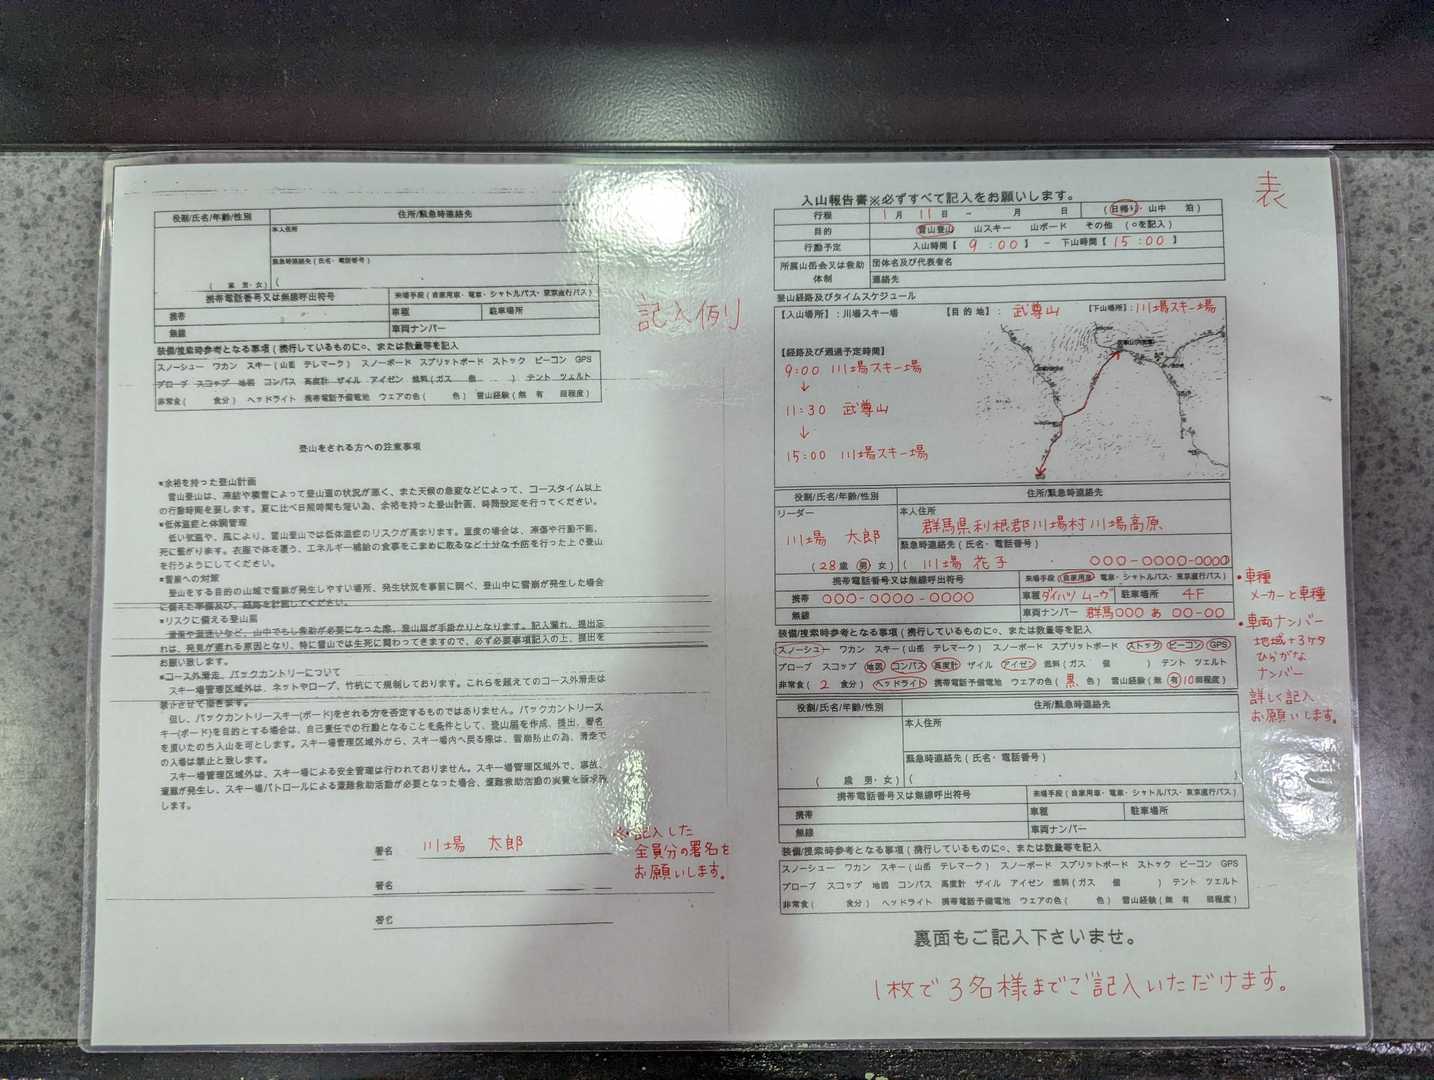 役割/氏名/年齢/性別
住所/緊急時連絡先
本人住所
緊急時連絡先(氏名・電話番号)
( 歳 男・女)
(
携帯電話番号又は無線呼出符号
来場手段(自家用車・電車・シャトルバス・東京直行バス)
携帯
車種
駐車場所
無線
車両ナンバー
装備/捜索時参考となる事項(携行しているものに○、または数量等を記入
スノーシュー ワカン スキー(山岳 テレマーク) スノーボード スプリットボード ストック ビーコン GPS
プローブ スコップ 地図 コンパス 高度計 ザイル アイゼン 燃料(ガス 個 ) テント ツェルト
非常食( 食分) ヘッドライト 携帯電話予備電池 ウェアの色( 色) 雪山経験(無 有 回程度)
記入例
登山をされる方への注意事項
■余裕を持った登山計画
雪山登山は、凍結や積雪によって登山道の状況が悪く、また天候の急変などによって、コースタイム以上
の行動時間を要します。夏に比べ日照時間も短い為、余裕を持った登山計画、時間設定を行ってください。
■低体温症と体調管理
低い気温や、風により、雪山登山では低体温症のリスクが高まります。重度の場合は、凍傷や行動不能、
死に繋がります。衣服で体を覆う、エネルギー補給の食事をこまめに取るなど十分な予防を行った上で登山
を行うようにしてください。
■雪崩への対策
登山をする目的の山域で雪崩が発生しやすい場所、発生状況を事前に調べ、登山中に雪崩が発生した場合
に備えた準備及び、経路を計画してください。
■リスクに備える登山届
滑落や道迷いなど、山中でもし救助が必要になった際、登山届が手掛かりとなります。記入漏れ、提出忘
れは、発見が遅れる原因となり、特に雪山では生死に関わってきますので、必ず必要事項記入の上、提出を
お願い致します。
■コース外滑走、バックカントリーについて
スキー場管理区域外は、ネットやロープ、竹杭にて規制しております。これらを超えてのコース外滑走は
禁止させて頂きます。
但し、バックカントリースキー(ボード)をされる方を否定するものではありません。バックカントリース
キー(ボード)を目的とする場合は、自己責任での行動となることを条件として、登山届を作成、提出、署名
を頂いたのち入山を可とします。スキー場管理区域外から、スキー場内へ戻る際は、雪崩防止の為、滑走で
の入場は禁止と致します。
スキー場管理区域外は、スキー場による安全管理は行われておりません。スキー場管理区域外で、事故、
遭難が発生し、スキー場パトロールによる遭難救助活動が必要となった場合、遭難救助活動の実費を請求致
します。
署名 川場 太郎
署名
署名
※・記入した
全員分の署名を
お願いします。
表
入山報告書※必ずすべて記入をお願いします。
行程 1月 11日 - 月 日 (日帰り・山中 泊)
目的 雪山登山 山スキー 山ボード その他 (○を記入)
行動予定 入山時間【 9:00 】 - 下山時間【 15:00 】
所属山岳会又は救助
体制
団体名及び代表者名
連絡先
登山経路及びタイムスケジュール
【入山場所】:川場スキー場 【目的地】: 武尊山 【下山場所】:川場スキー場
【経路及び通過予定時間】
9:00 川場スキー場
↓
11:30 武尊山
↓
15:00 川場スキー場
役割/氏名/年齢/性別
住所/緊急時連絡先
リーダー
川場 太郎
(28歳 男・女)
本人住所
群馬県利根郡川場村川場高原
緊急時連絡先(氏名・電話番号)
( 川場 花子 000-0000-0000)
携帯電話番号又は無線呼出符号
来場手段(自家用車・電車・シャトルバス・東京直行バス)
携帯 000-0000-0000
車種 ダイハツ ムーヴ 駐車場所 4F
無線
車両ナンバー 群馬000 あ 00-00
装備/捜索時参考となる事項(携行しているものに○、または数量等を記入
スノーシュー ワカン スキー(山岳 テレマーク) スノーボード スプリットボード ストック ビーコン GPS
プローブ スコップ 地図 コンパス 高度計 ザイル アイゼン 燃料(ガス 個 ) テント ツェルト
非常食( 2 食分) ヘッドライト 携帯電話予備電池 ウェアの色( 黒 色) 雪山経験(無 有10回程度)
・車種
メーカーと車種
・車両ナンバー
地域+3ケタ
ひらがな
ナンバー
詳しく記入
お願いします。
役割/氏名/年齢/性別
住所/緊急時連絡先
本人住所
緊急時連絡先(氏名・電話番号)
( 歳 男・女)
( )
携帯電話番号又は無線呼出符号
来場手段(自家用車・電車・シャトルバス・東京直行バス)
携帯
車種
駐車場所
無線
車両ナンバー
装備/捜索時参考となる事項(携行しているものに○、または数量等を記入
スノーシュー ワカン スキー(山岳 テレマーク) スノーボード スプリットボード ストック ビーコン GPS
プローブ スコップ 地図 コンパス 高度計 ザイル アイゼン 燃料(ガス 個 ) テント ツェルト
非常食( 食分) ヘッドライト 携帯電話予備電池 ウェアの色( 色) 雪山経験(無 有 回程度)
裏面もご記入下さいませ。
1枚で3名様までご記入いただけます。